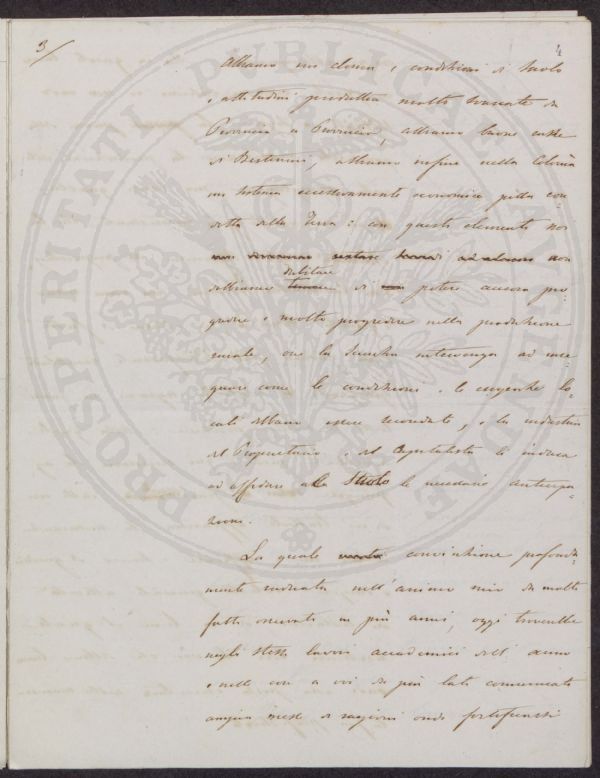 3/
4
Abbiamo un clima, e condizioni di suolo
e attitudini produttive molto svariate da
Provincia a Provincia, abbiamo buone razze
di Bestiame, abbiamo infine nella Colonia
un sistema eccessivamente economico pella con
dotta della Terra: con questi elementi noi
non
dubitare
dobbiamo temere di non potere ancora pro-
gredire e molto progredire nella produzione
, ove la Scienza intervenga ad inse-
gnare come le condizioni e le esigenze lo-
cali debbano essere secondate, e la industria
del Proprietario e del Capitalista le induca
ad affidare alla Suolo le necessarie anticipa-
zioni.
La quale convinzione profonda-
mente radicata nell'animo mio da molti
fatti osservati in più anni, oggi troverebbe
negli stessi lavori accademici dell'anno
e nelle cose a voi da più lati comunicate
ampia messe di ragioni onde fortificarsi
PROSPERITATI PVBLICAE AVGENDAE